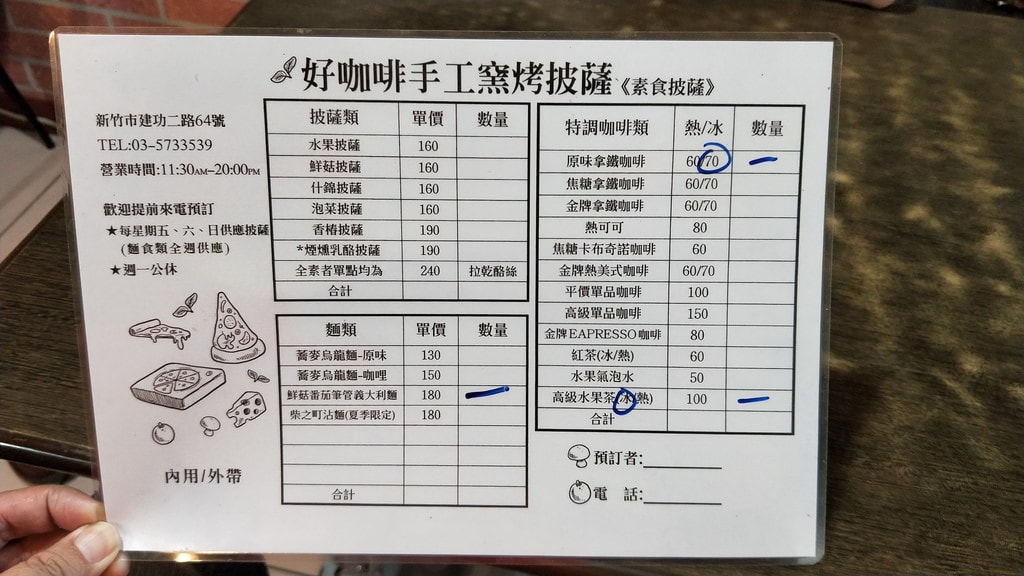 好咖啡手工窯烤披薩《素食披薩》
新竹市建功二路64號
TEL:03-5733539
營業時間:11:30AM-20:00PM
歡迎提前來電預訂
★每星期五、六、日供應披薩
(麵食類全週供應)
★週一公休
內用/外帶
披薩類 單價 數量
水果披薩 160
鮮菇披薩 160
什錦披薩 160
泡菜披薩 160
香椿披薩 190
*煙燻乳酪披薩 190
全素者單點均為 240 拉乾酪絲
合計
麵類 單價 數量
蕎麥烏龍麵-原味 130
蕎麥烏龍麵-咖哩 150
鮮菇番茄筆管義大利麵 180 一
柴之町沾麵(夏季限定) 180
合計
特調咖啡類 熱/冰 數量
原味拿鐵咖啡 60/70 一
焦糖拿鐵咖啡 60/70
金牌拿鐵咖啡 60/70
熱可可 80
焦糖卡布奇諾咖啡 60
金牌熱美式咖啡 60/70
平價單品咖啡 100
高級單品咖啡 150
金牌EAPRESSO咖啡 80
紅茶(冰/熱) 60
水果氣泡水 50
高級水果茶(冰/熱) 100 一
合計
預訂者:
電 話: